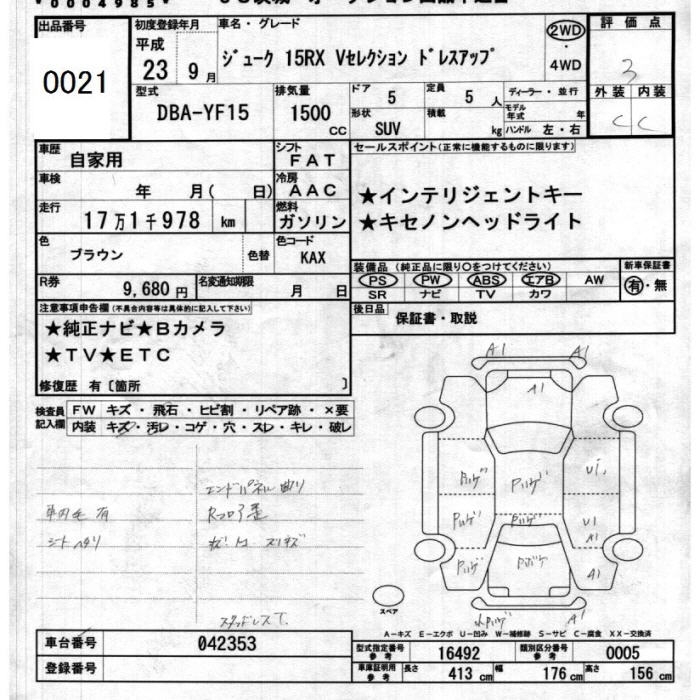 出品番号 0021
初度登録年月 平成 23年 9月
車名・グレード ジューク 15RX Vセレクション ドレスアップ
2WD・4WD
評価点 3
外装 C 内装 C
型式 DBA-YF15
排気量 1500 CC
ドア 5 定員 5 人
形状 SUV 積載 kg
ディーラー・並行
モデル年式 年
ハンドル 左・右
車歴 自家用
シフト FAT
セールスポイント(正常に機能するものに限ります)
車検 年 月( 日)
冷房 AAC
★インテリジェントキー
★キセノンヘッドライト
走行 17万1千978 km
燃料 ガソリン
色 ブラウン 色替
色コード KAX
装備品(純正品に限り○をつけてください) 新車保証書
PS PW ABS エアB AW 有・無
SR ナビ TV カワ
R券 9,680円
名変通知期限 月 日
後日品 保証書・取説
注意事項申告欄(不具合内容等は具体的に記入して下さい)
★純正ナビ★Bカメラ
★TV★ETC
修復歴 有〔箇所 〕
検査員記入欄
FW キズ・飛石・ヒビ割・リペア跡・×要
内装 キズ・汚レ・コゲ・穴・スレ・キレ・破レ
エンドパネル曲り
車内毛有
シートヘタリ
スタッドレスT.
A1 A1
A1
U1
U1
A1
A1
A1
スペア
A-キズ E-エクボ U-凹み W-補修跡 S-サビ C-腐食 XX-交換済
車台番号 042353
登録番号
型式指定番号 参考 16492 類別区分番号 参考 0005
車庫証明用 参考 長さ 413 cm 幅 176 cm 高さ 156 cm